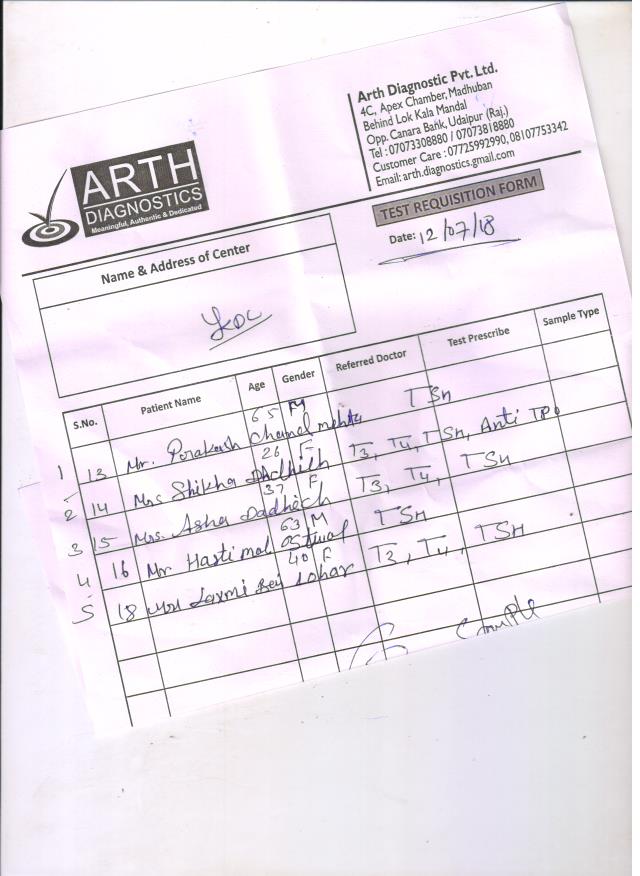 Arth Diagnostic Pvt. Ltd.
4C, Apex Chamber, Madhuban
Behind Lok Kala Mandal
Opp. Canara Bank, Udaipur (Raj.)
Tel : 07073308880 / 07073818880
Customer Care : 07725992990, 08107753342
Email: arth.diagnostics.gmail.com
ARTH
DIAGNOSTICS
Meaningful, Authentic & Dedicated
TEST REQUISITION FORM
Date: 12/07/18
Name & Address of Center
S.No. Patient Name Age Gender Referred Doctor Test Prescribe Sample Type
1 13 Mr. Porakash Chamal mehta 65 M TSH
2 14 Mrs Shikha Dadhich 26 F T3, T4, TSH, Anti TPO
3 15 Mrs. Asha Dadhech 37 F T3, T4, TSH
4 16 Mr Hastimal Ostwal 63 M TSH
5 18 Mrs Laxmi Lohar 40 F T3, T4, TSH